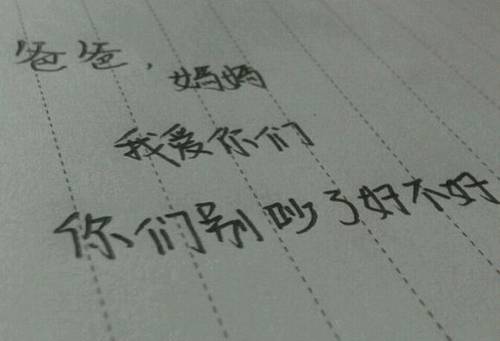 爸爸，妈妈
我爱你们
你们别吵了好不好